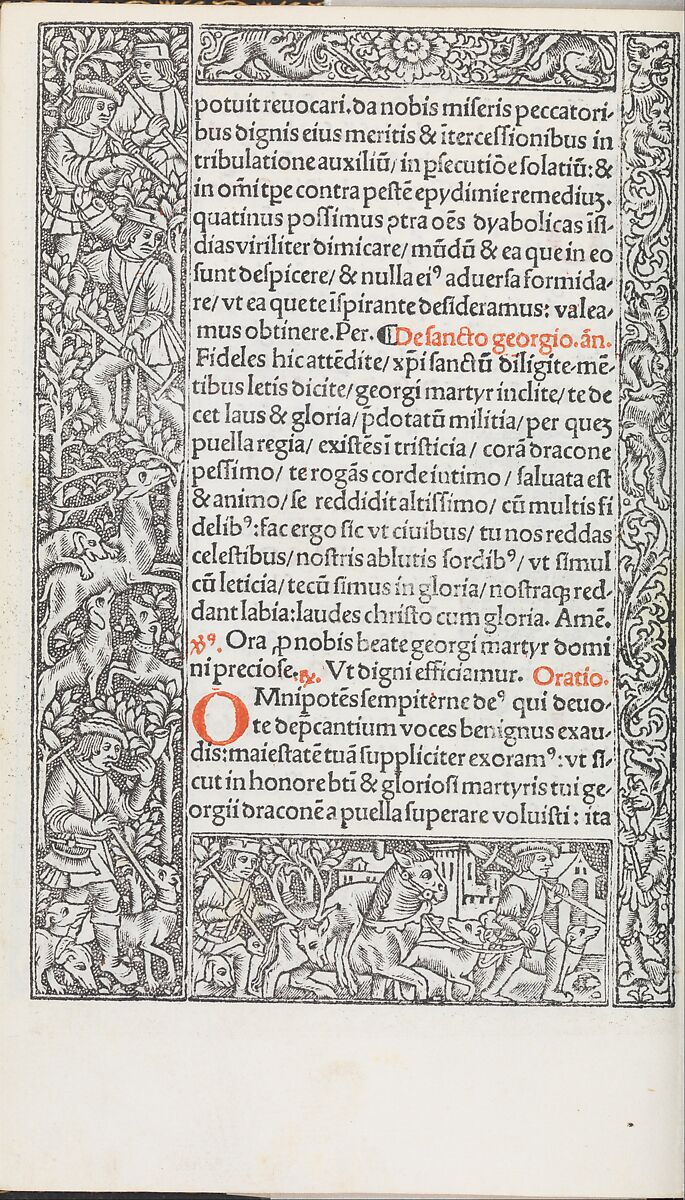 potuit reuocari. da nobis miseris peccatori-
bus dignis eius meritis & ītercessionibus in
tribulatione auxiliū/ in ꝑsecutiōe solatiū: &
in om̄i tp̄e contra pestē epydimie remediuꝫ.
quatinus possimus ꝯtra oēs dyabolicas īsi-
dias viriliter dimicare/ mūdū & ea que in eo
sunt despicere/ & nulla eiꝰ aduersa formida-
re/ vt ea que te īspirante desideramus: valea-
mus obtinere. Per. ¶ De sancto georgio. ān.
Fideles hic attēdite/ xp̄i sanctū diligite-mē-
tibus letis dicite/ georgi martyr inclite/ te de
cet laus & gloria/ p̄dotatū militia/ per queꝫ
puella regia/ existēs ī tristicia/ corā dracone
pessimo/ te rogās corde intimo/ saluata est
& animo/ se reddidit altissimo/ cū multis fi
delibꝰ: fac ergo sic vt ciuibus/ tu nos reddas
celestibus/ nostris ablutis sordibꝰ/ vt simul
cū leticia/ tecū simus in gloria/ nostraqꝫ red-
dant labia: laudes christo cum gloria. Amē.
℣ꝰ. Ora ꝓ nobis beate georgi martyr domi
ni preciose. ℟. Vt digni efficiamur. Oratio.
OMnipotēs sempiterne deꝰ qui deuo-
te dep̄cantium voces benignus exau-
dis: maiestatē tuā suppliciter exoramꝰ: vt si-
cut in honore bt̄i & gloriosi martyris tui ge-
orgii draconē a puella superare voluisti: ita